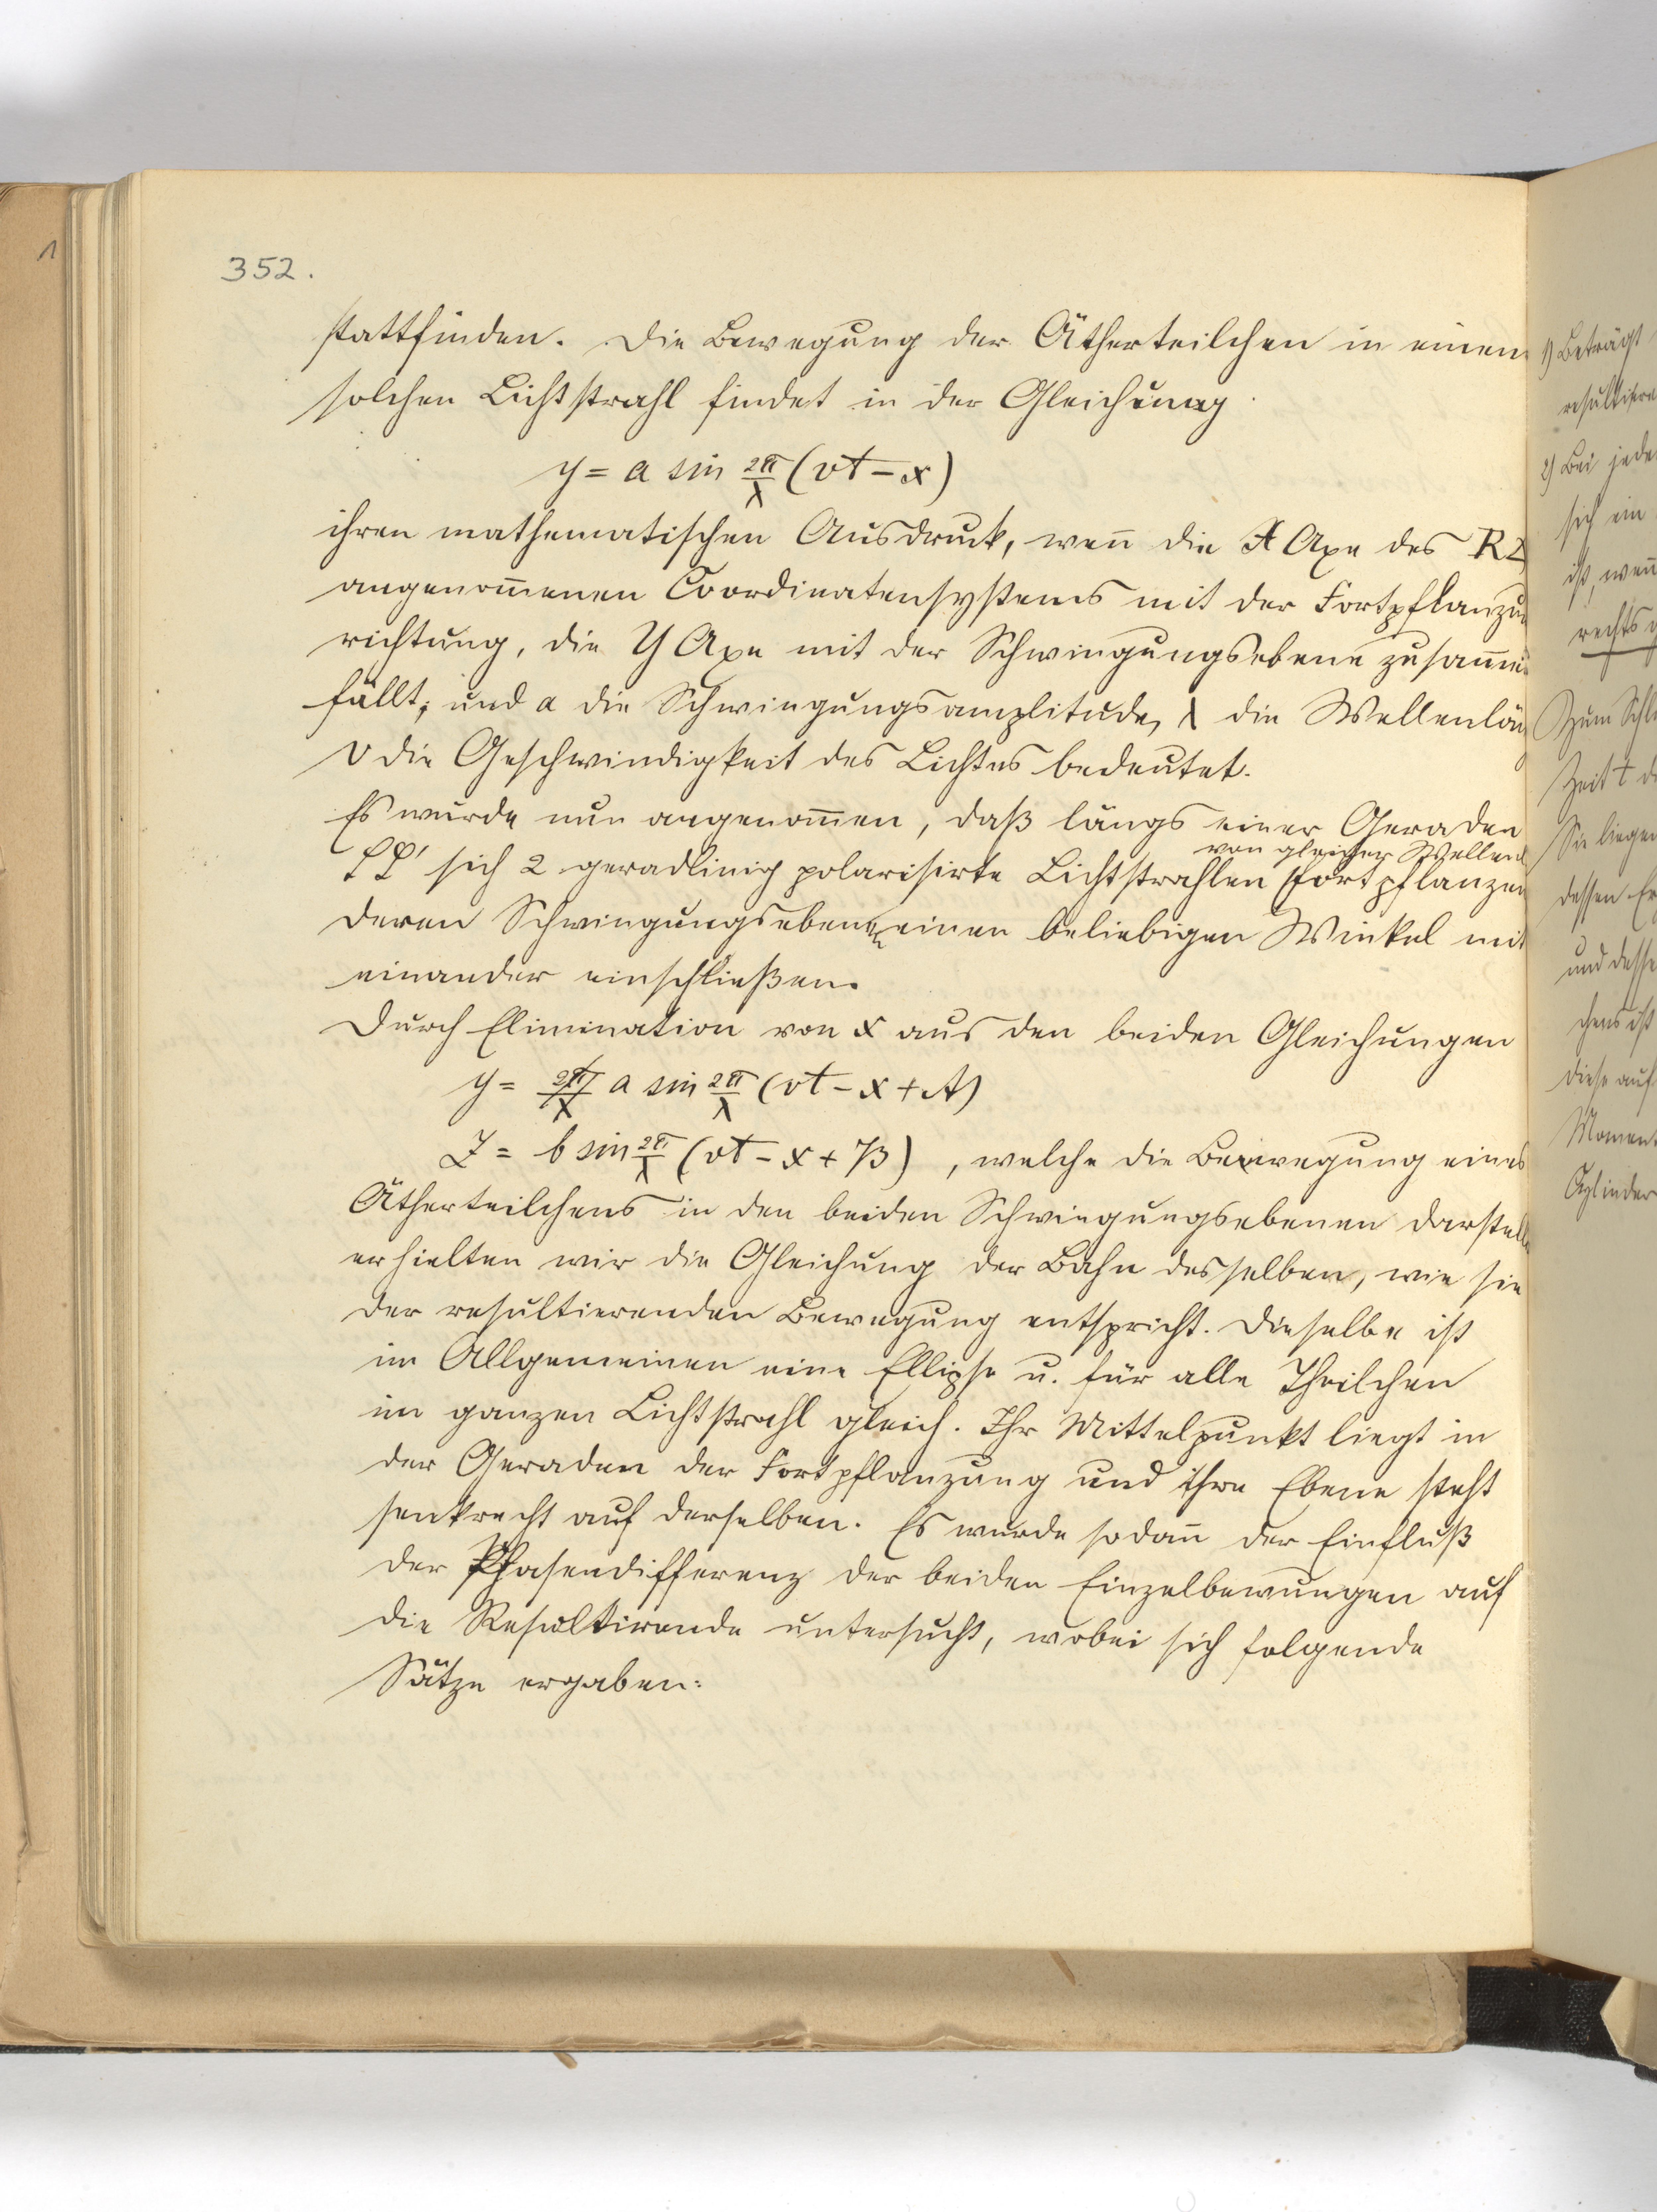 352.
stattfinden. Die Bewegung der Ätherteilchen in einem
solchen Lichtstrahl findet in der Gleichung
y = a sin 2π/λ (vt - x)
ihren mathematischen Ausdruck, wen̄ die X Axe des
angenom̄enen Coordinatensystems mit der Fortpflanzu
richtung, die Y Axe mit der Schwingungsebene zusam̄en
fällt, und a die Schwingungsamplitude, λ die Wellenlän
v die Geschwindigkeit des Lichtes bedeutet.
Es wurde nun angenom̄en, daß längs einer Geraden
von gleicher Wellenl
PP' sich 2 geradlinig polarisirte Lichtstrahlen fortpflanzen
deren Schwingungsebenen einen beliebigen Winkel mit
einander einschließen.
Durch Elimination von x aus den beiden Gleichungen
y = a sin 2π/λ (vt - x + A)
Z = b sin 2π/λ (vt - x + B) , welche die Bewegung eines
Ätherteilchens in den beiden Schwingungsebenen darstell
erhielten wir die Gleichung der Bahn desselben, wie sie
der resultierenden Bewegung entspricht. Dieselbe ist
im Allgemeinen eine Ellipse u. für alle Theilchen
im ganzen Lichtstrahl gleich. Ihr Mittelpunkt liegt in
der Geraden der Fortpflanzung und ihre Ebene steht
senkrecht auf derselben. Es wurde sodan̄ der Einfluß
der Phasendifferenz der beiden Einzelbewungen auf
die Resultirende untersucht, wobei sich folgende
Sätze ergaben:
1) Beträgt
2) Bei jede
sich ein
ist, wen̄
rechts
Zum Schl
Zeit t d
Sie liegen
dessen
und desse
chens ist
diese auf
Moment
Cylinder